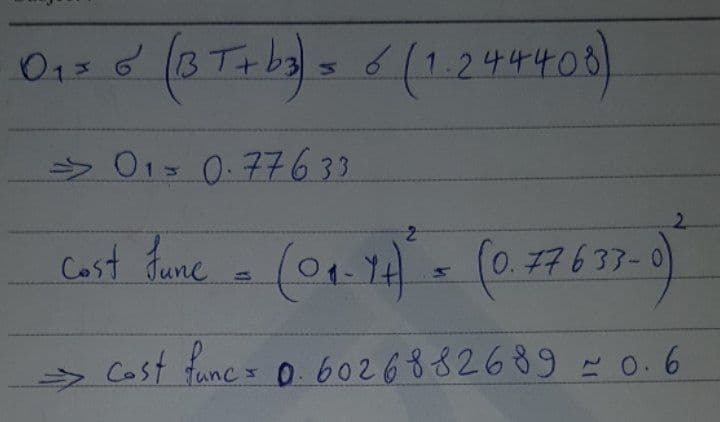 O1 = σ (BT + b3) = σ (1.244408)
⇒ O1 = 0.77633
Cost func = (O1 - Yt)² = (0.77633 - 0)²
⇒ Cost func = 0.6026882689 ≃ 0.6